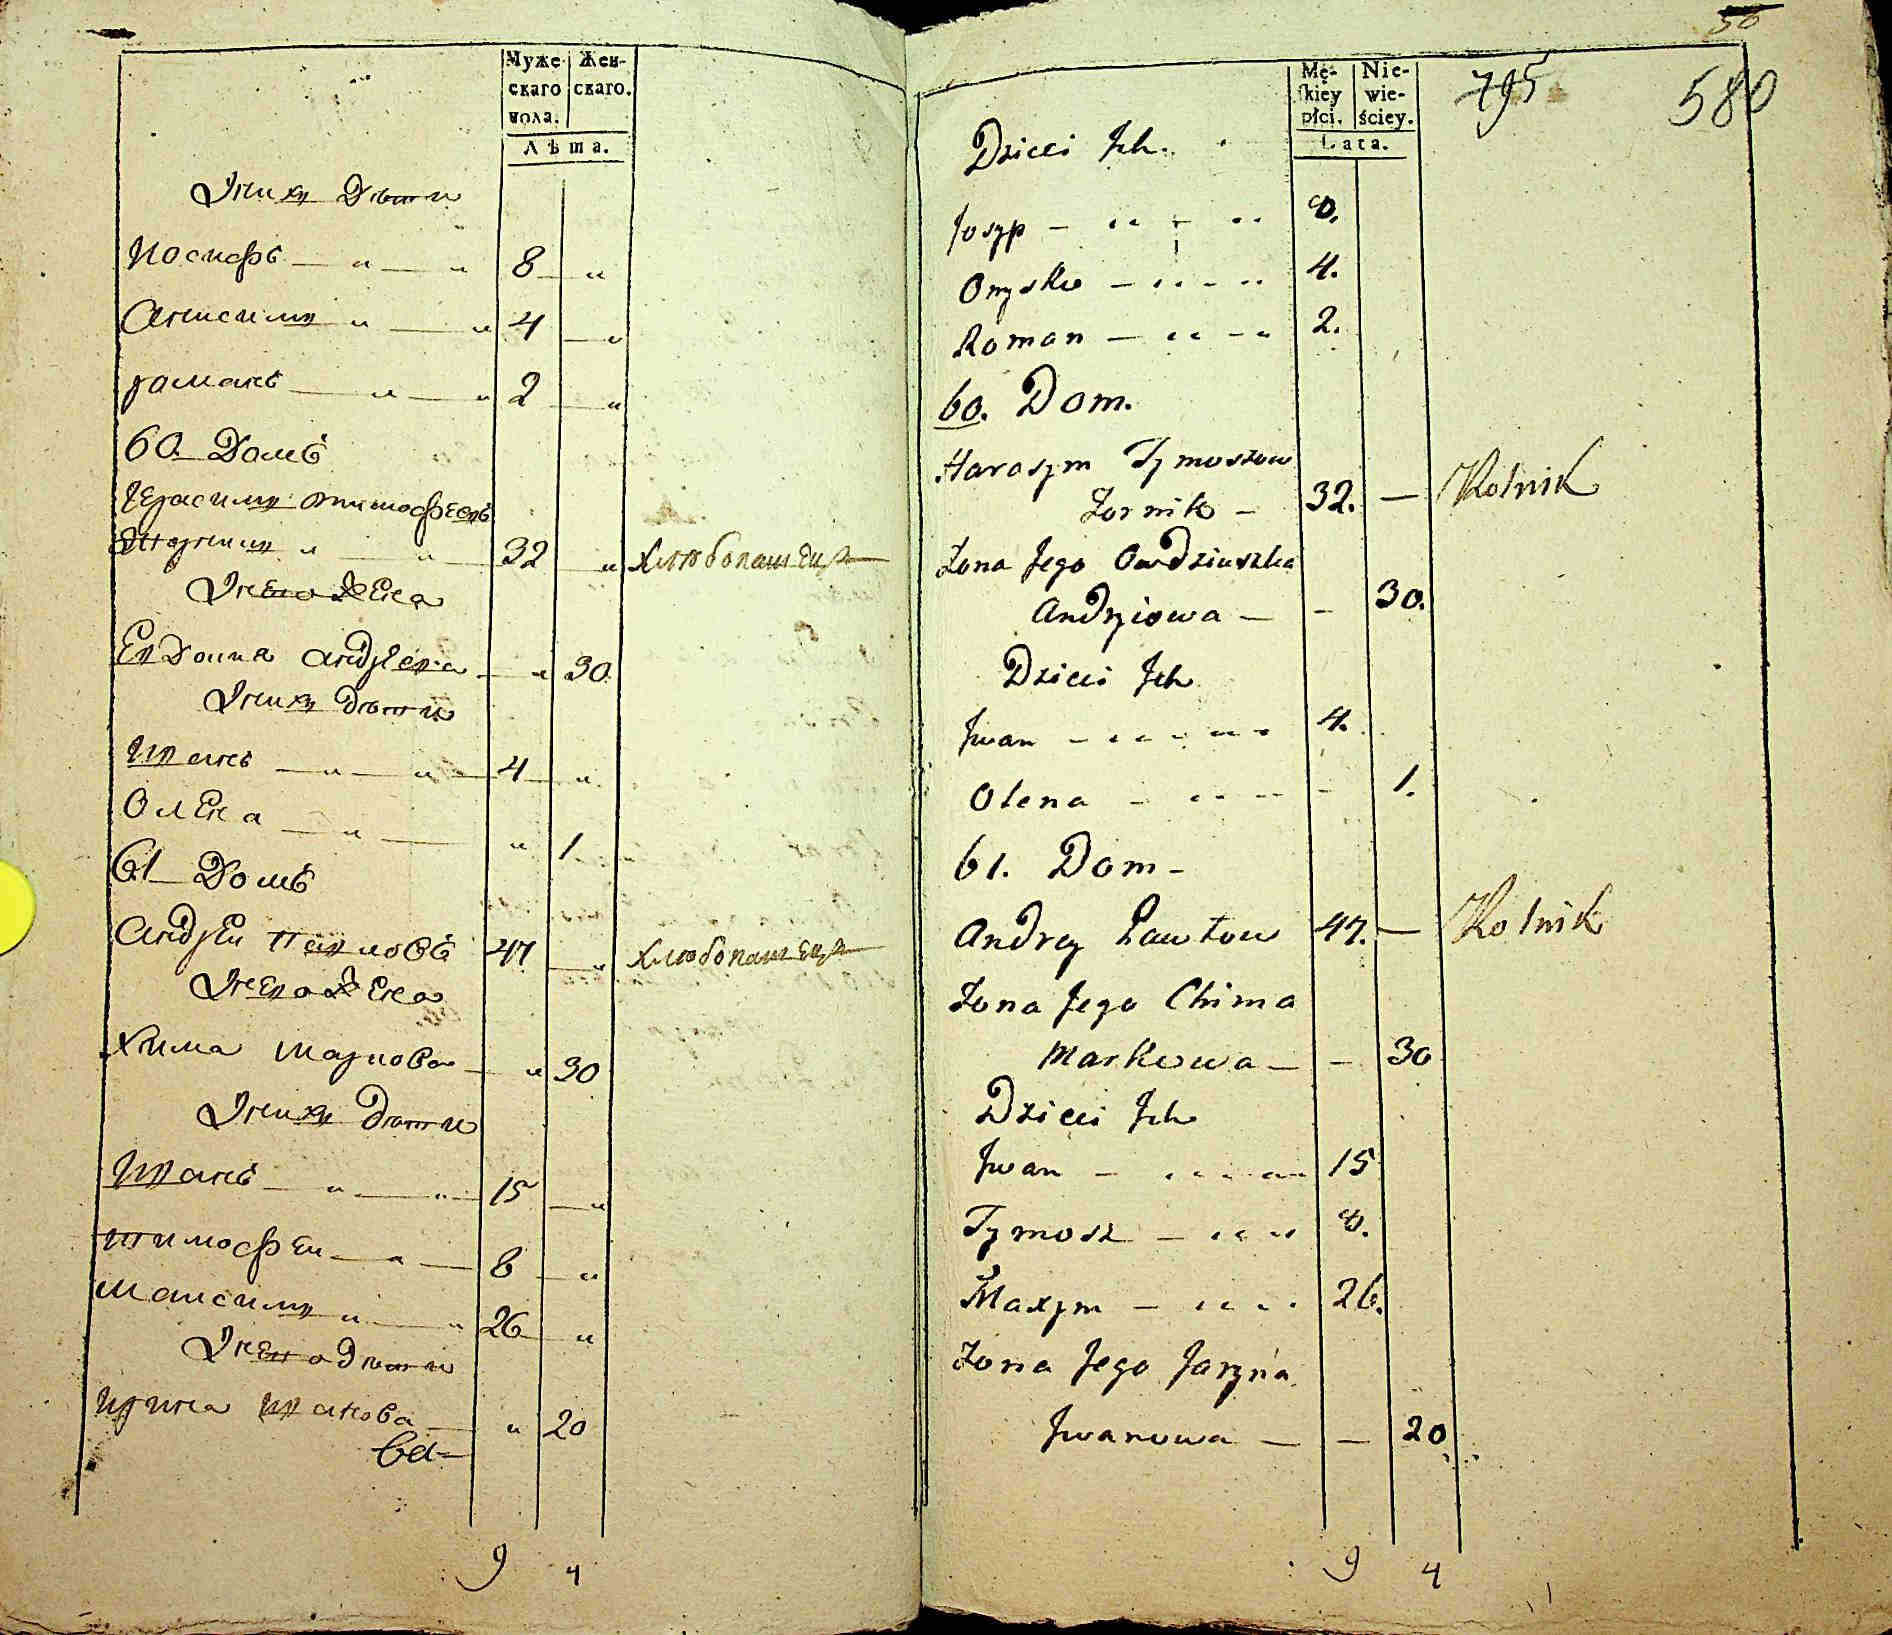 Муже Жен-
скаго скаго.
пола.
Лѣта.
Ихъ Дѣти
Иосифъ — „ — „ 8 — „
Анисимъ „ — „ 4 — „
романъ — „ — „ 2 — „
60. Домъ
Герасимъ тимофеевъ
„ — „ 32 — „ хлѣбопашецъ
Его Жена
Евдокия андреева — „ 30
Ихъ дѣти
Иванъ — „ — „ — 4 — „
Олена — „ — „ 1
61 Домъ
андрей павловъ 47 — „ хлѣбопашецъ
Его Жена
Хима маркова — „ 30
Ихъ дѣти
Иванъ — „ — „ — 15 — „
тимофей — „ — 8 — „
максимъ „ — „ 26 — „
ирина иванова — „ 20
9 4
56
Mę- Nie-
skiey wie-
płci. ściey.
Lata.
795 580
Dzieci Ich.
Josyp — „ — „ 8.
Onysko — „ — „ 4.
Roman — „ — „ 2.
60. Dom.
Harasym Tymoszow
Zornik — 32. — Rolnik
Żona Jego Owdziuszka
Andrziowa — — 30.
Dzieci Ich
Jwan — „ — „ 4.
Olena — „ — — 1.
61. Dom —
Andrey Pawłow 47. — Rolnik
Żona Jego Chima
Markowa — — 30
Dzieci Ich
Jwan — „ — 15
Tymosz — „ „ 8.
Maxym — „ „ 26.
Żona Jego Jaryna
Jwanowa — — 20
9 4